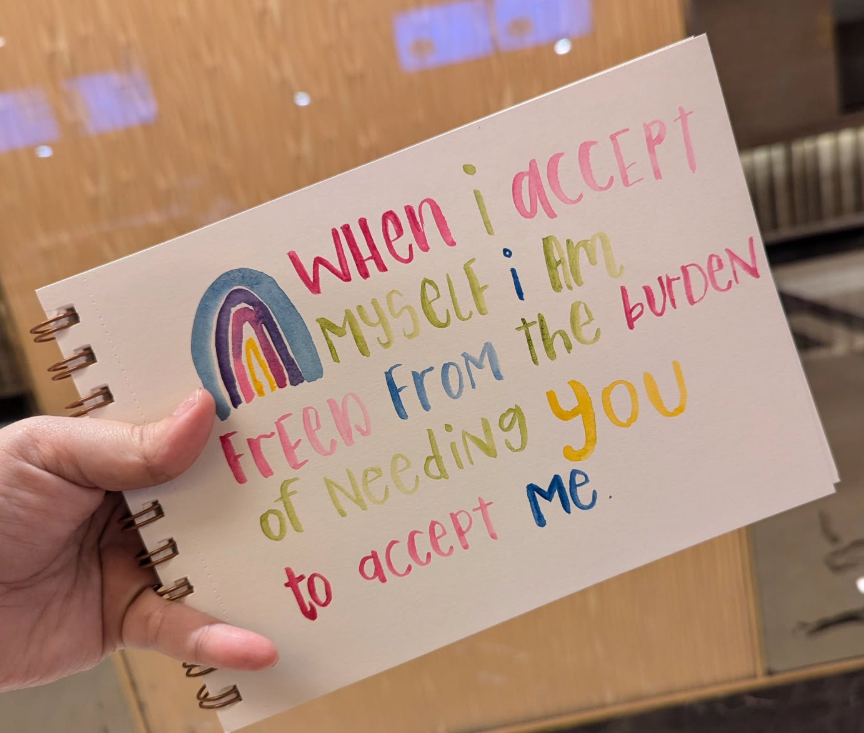 WHen i accEPt
MYSELF i AM
FrEED FroM the burDEN
oF NeediNg YOU
to accept Me.